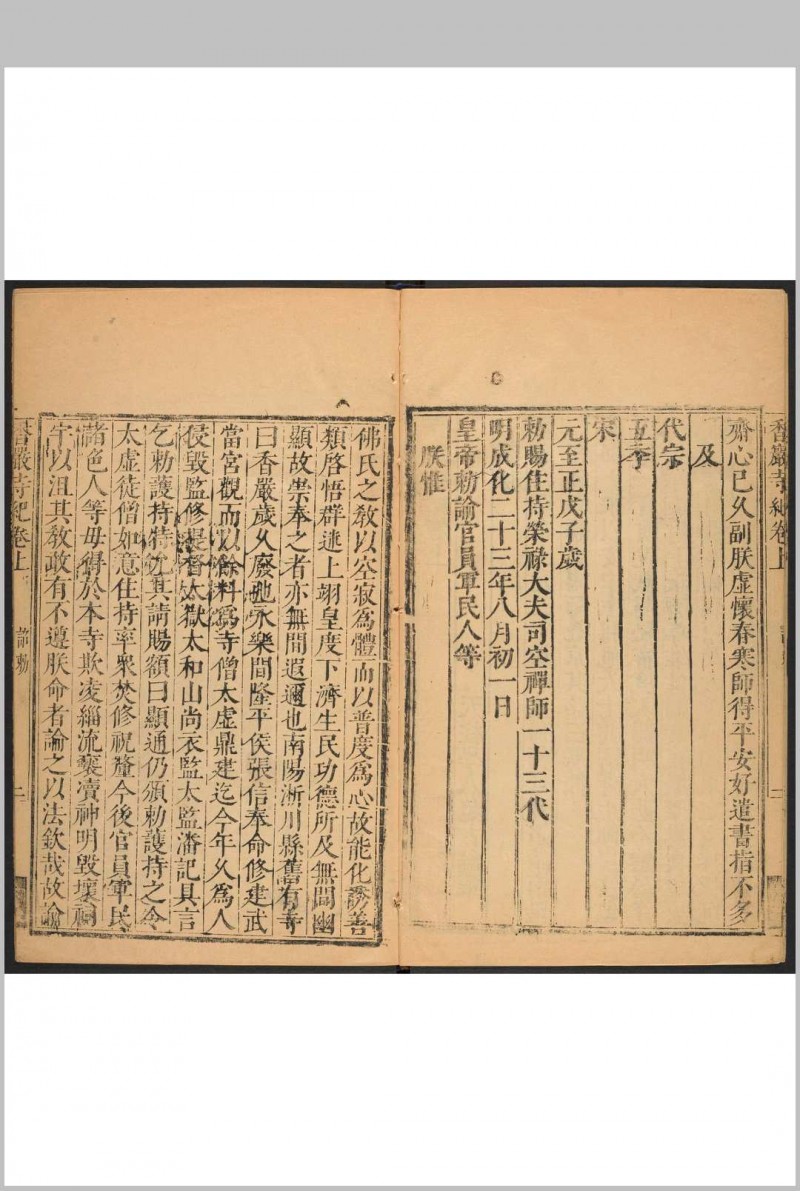 齋心已久副朕虛懷春寒師得平安好遣書指不多
及
代宗
五季
宋
元至正戊子歲
勅賜住持榮祿大夫司空禪師一十三代
明成化二十三年八月初一日
皇帝勅諭官員軍民人等
朕惟
佛氏之教以空寂爲體而以普度爲心故能化誘善
類啓悟群迷上翊皇度下濟生民功德所及無間幽
顯故崇奉之者亦無間遐邇也南陽淅川縣舊有寺
曰香嚴歲久廢弛永樂間隆平侯張信奉命修建武
當宮觀而以餘料爲寺僧太虛鼎建迄今年久爲人
侵毀監修提督太嶽太和山尚衣監太監潘記具言
乞勅護持特允其請賜額曰顯通仍頒勅護持之令
太虛徒僧如意住持率衆焚修祝釐今後官員軍民
諸色人等毋得於本寺欺凌緇流褻瀆神明毀壞祠
宇以沮其教敢有不遵朕命者論之以法欽哉故諭
香嚴寺紀卷上 詔勅 二